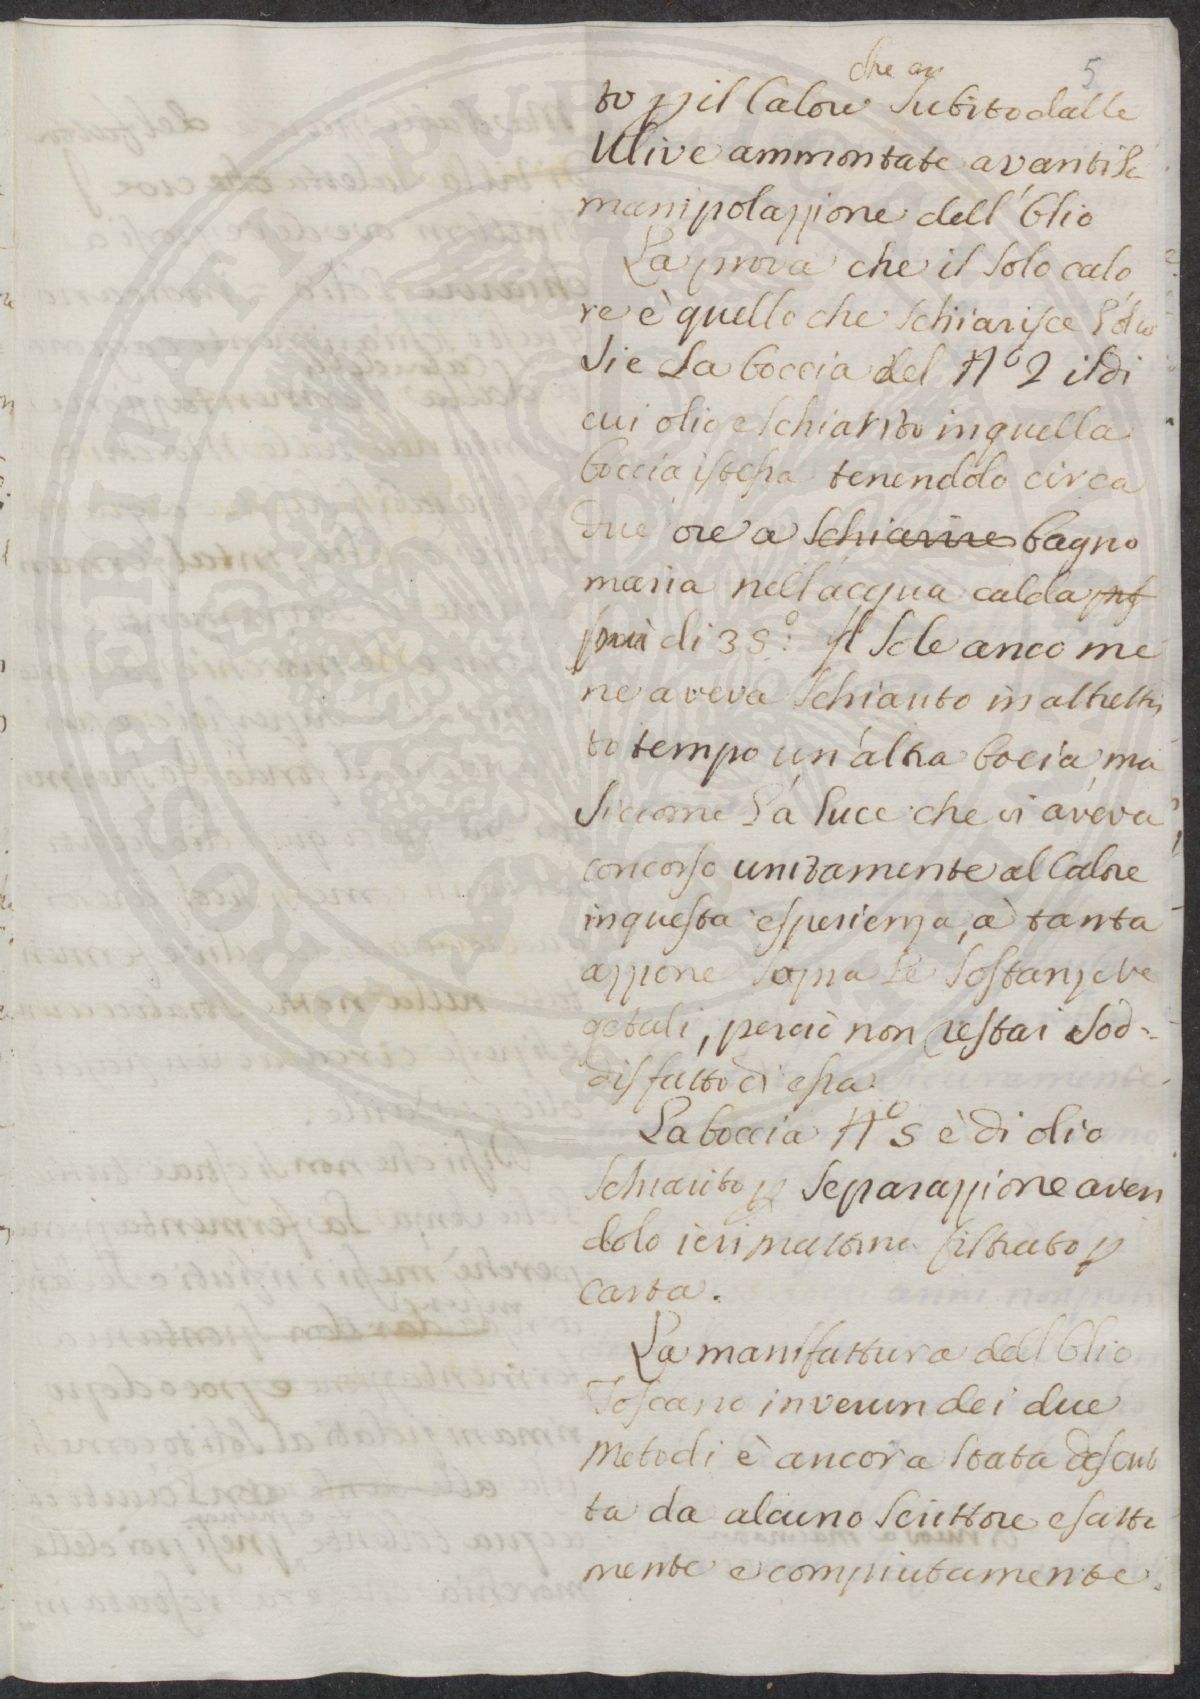 5
che an
to p il Calore subito dalle
Ulive ammontate avanti la
manipolazzione dell'Olio
La prova che il solo calo
re è quello che schiarisce l'olio
si e la boccia del N.o 2 il di
cui olio e schiarito in quella
boccia istessa tenendolo circa
due ore a schiarire bagno
maria nell'acqua calda
di 35°: Il Sole anco me
ne aveva schiarito in altrettan
to tempo un'altra bocia, ma
siccome la luce che vi aveva
concorso unitamente al Calore
in questa esperienza, à tanta
azzione sopra le sostanze ve
getali, perciò non restai sod=
disfatto di essa.
La boccia N.o 5 è di olio
schiarito p separazzione aven
dolo ieri mattina filtrato p
carta.
La manifattura dell'Olio
Toscano in verun dei due
Metodi è ancora stata descrit
ta da alcuno scrittore esatta
mente e compiutamente.